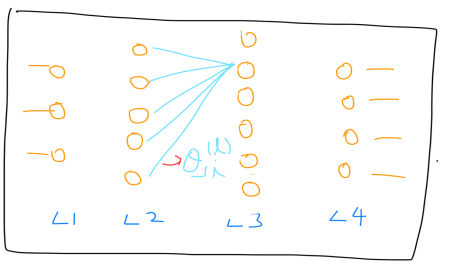 θ_{ji}^{(l)}
L1 L2 L3 L4